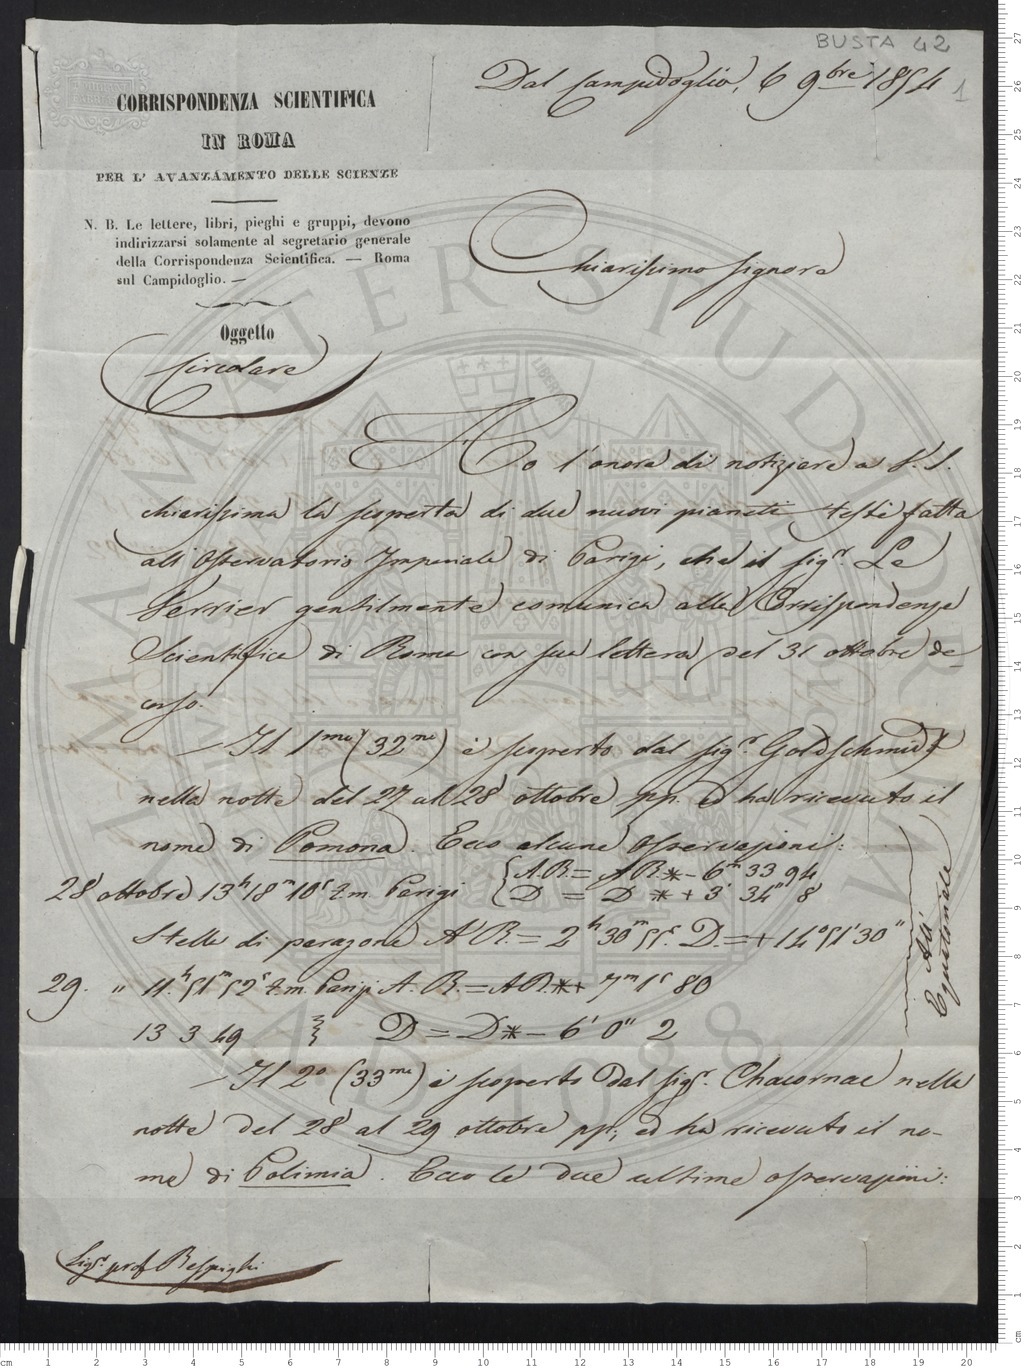 BUSTA 42
1
CORRISPONDENZA SCIENTIFICA
IN ROMA
PER L' AVANZAMENTO DELLE SCIENZE
N. B. Le lettere, libri, pieghi e gruppi, devono
indirizzarsi solamente al segretario generale
della Corrispondenza Scientifica. — Roma
sul Campidoglio. —
Oggetto
Circolare
Dal Campidoglio, 6 9bre 1854
Chiarissimo Signore
Ho l'onore di notiziare a S. S.
chiarissima la scoperta di due nuovi pianeti testè fatta
all'Osservatorio Imperiale di Parigi, che il sigr. Le
Verrier gentilmente comunica alla Corrispondenza
Scientifica di Roma con sua lettera del 31 ottobre de-
corso.
— Il 1mo (32mo) è scoperto dal sigr. Goldschmidt
nella notte del 27 al 28 ottobre pp. ed ha ricevuto il
nome di Pomona. Ecco alcune osservazioni:
28 ottobre 13h 18m 10s t.m. Parigi { A R. = A R * - 6m 33 94
D = D * + 3' 34" 8
Stella di paragone A R. = 2h 30m 55s. D. = + 14° 51' 30"
29. " 11h 51m 52s t.m. Parigi A. R. = A R. * + 7m 1s 80
13 3 49 } D = D * - 6' 0" 2
All'
Equatoriale
— Il 2o (33mo) è scoperto dal sigr. Chacornac nella
notte del 28 al 29 ottobre pp, ed ha ricevuto il no-
me di Polimia. Ecco le due ultime osservazioni:
Sigr. prof. Respighi
ALMA MATER STUDIORUM
A.D. 1088